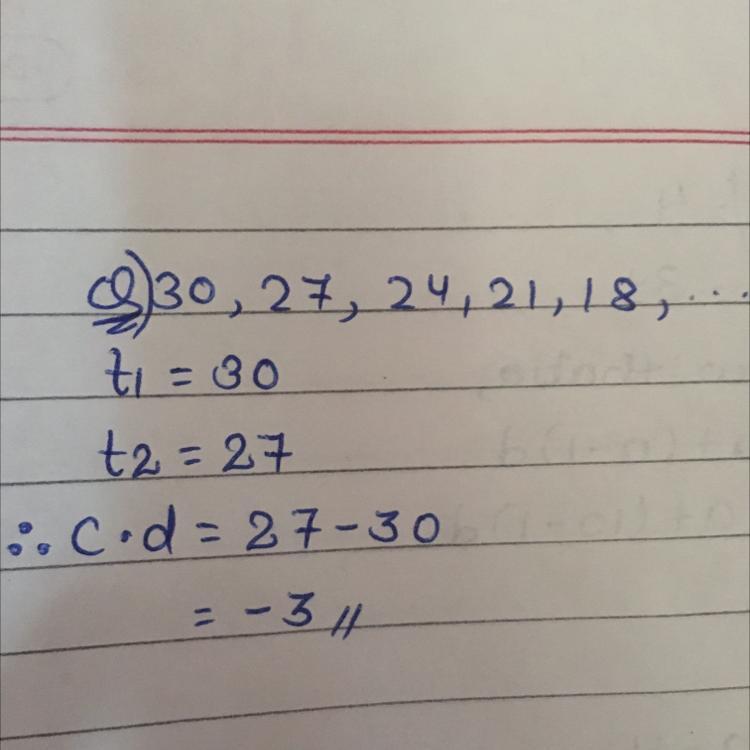 Q) 30, 27, 24, 21, 18, ...
t1 = 30
t2 = 27
∴ C.d = 27 - 30
= -3 //